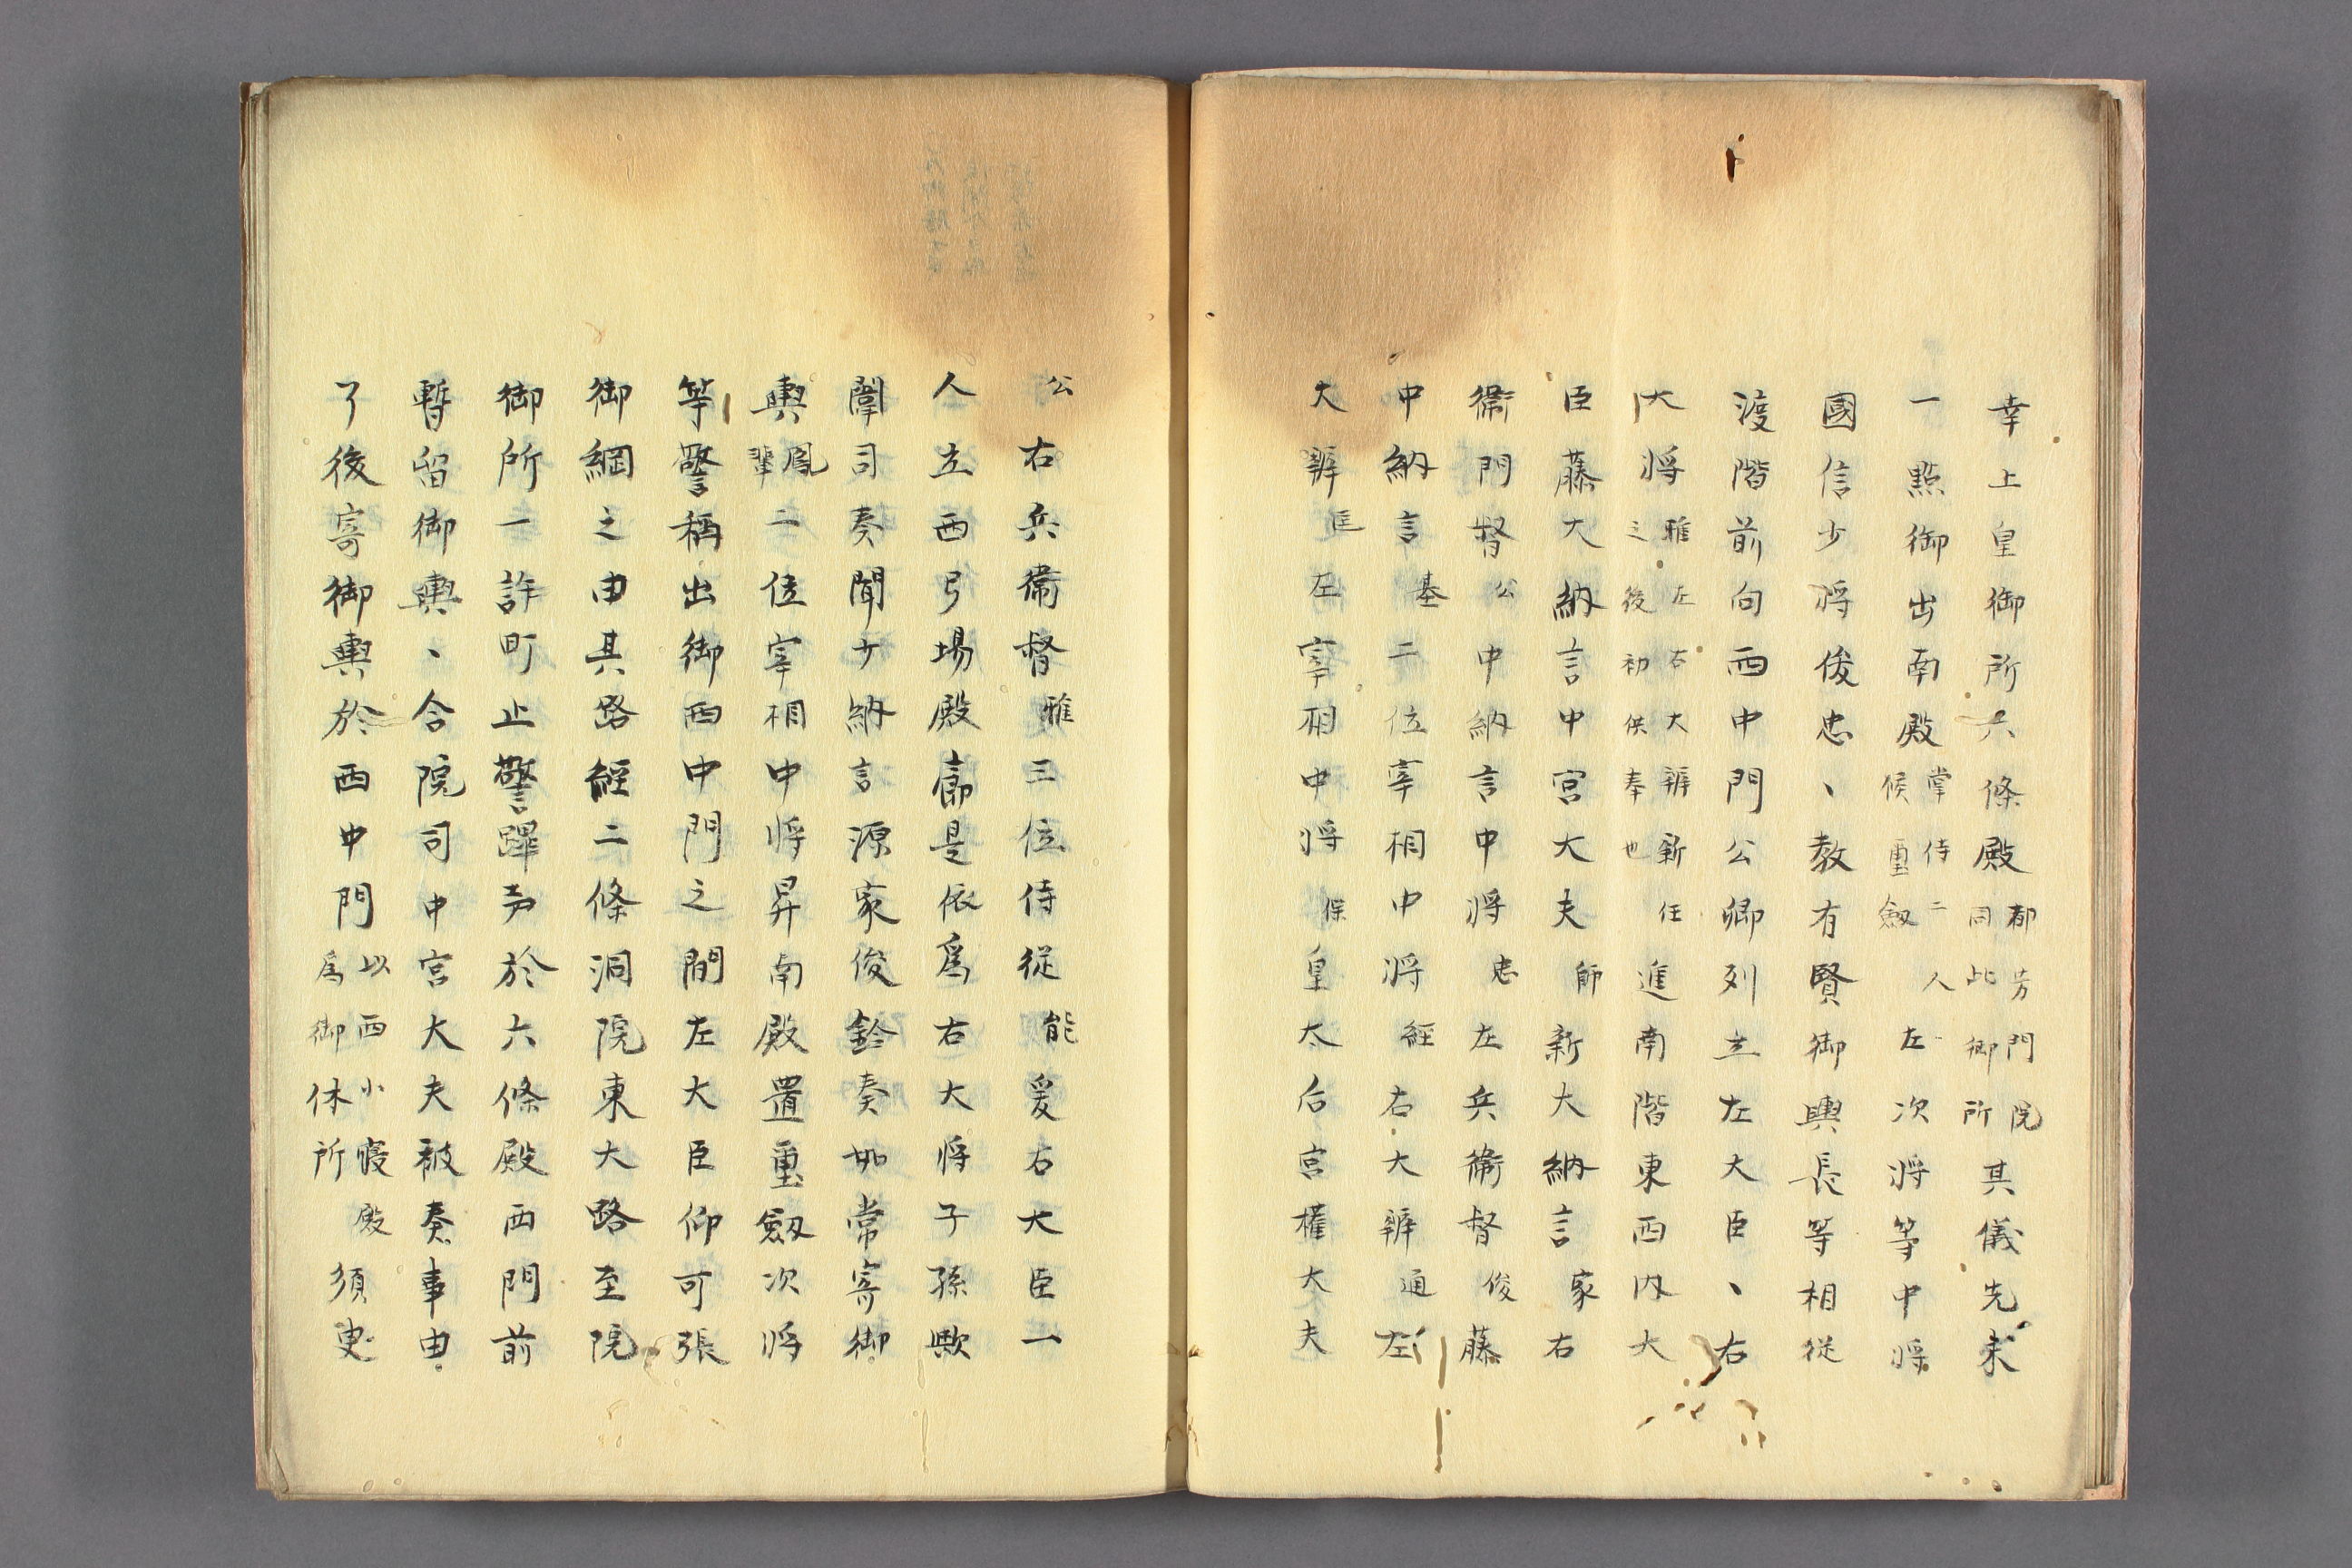 幸上皇御所六條殿都芳門院同此御所其儀先未
一點御出南殿掌侍二人候璽劔左次将等中将
國信少将俊忠、教有賢御輿長等相従
渡階前向西中門公卿列立左大臣、右
大将雅左右大辨新任之後初供奉也進南階東西内大
臣藤大納言中宮大夫師新大納言家右
衞門督公中納言中将忠左兵衞督俊藤
中納言基二位宰相中将經右大辨通左
大辨匡左宰相中将保皇太后宮權大夫
公右兵衞督雅三位侍従能爰右大臣一
人立西弓場殿廊是依爲右大将子孫歟
闈司奏聞少納言源家俊鈴奏如常寄御
輿鳳輦二位宰相中将昇南殿置璽劔次将
等警稱出御西中門之間左大臣仰可張
御綱之由其路經二條洞院東大路至院
御所一許町止警蹕声於六條殿西門前
暫留御輿、令院司中宮大夫被奏事由
了後寄御輿於西中門以西小寝殿爲御休所須臾